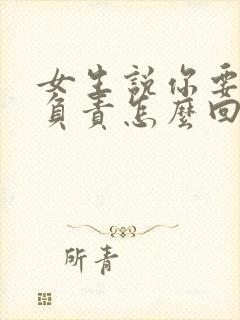 女生說你要
負責怎麼回
所青